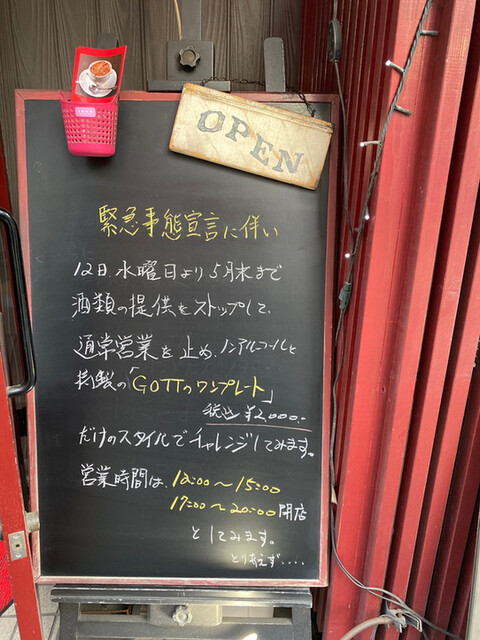 OPEN
緊急事態宣言に伴い
12日.水曜日より5月末まで
酒類の提供をストップして、
通常営業を止め、ノンアルコールと
「GOTTのワンプレート」
税込 ¥2,000.-
だけのスタイルでチャレンジしてみます。
営業時間は、12:00〜15:00
17:00〜20:00閉店
としてみます。
とりあえず....